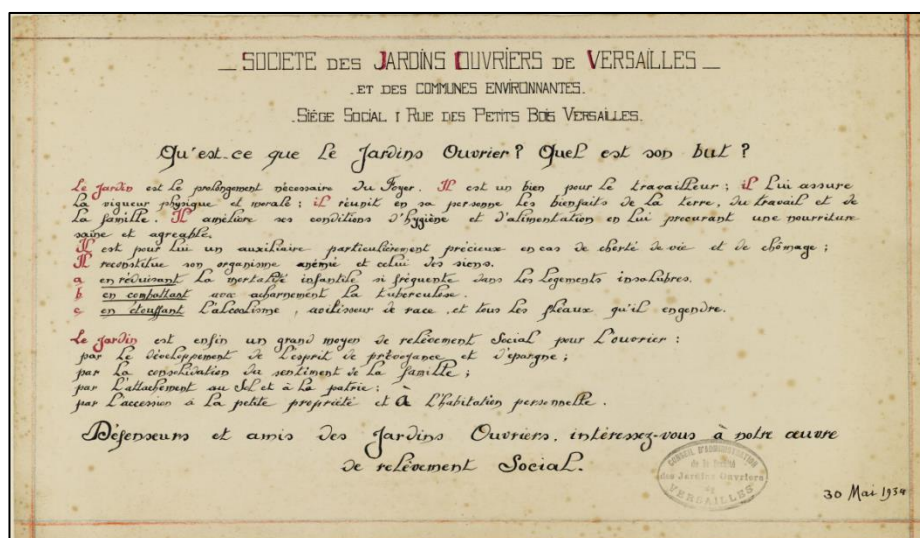 _ SOCIETE DES JARDINS OUVRIERS DE VERSAILLES _
. ET DES COMMUNES ENVIRONNANTES.
. SIÈGE SOCIAL 1 RUE DES PETITS BOIS VERSAILLES.
Qu'est-ce que Le Jardins Ouvrier ? Quel est son but ?
Le Jardin est Le prolongement nécessaire Du Foyer. Il est un bien pour Le travailleur ; il Lui assure
La vigueur physique et morale ; il réunit en sa personne Les bienfaits de La terre, du travail et de
La famille. Il améliore ses conditions d'hygiène et d'alimentation en Lui procurant une nourriture
saine et agreable.
Il est pour Lui un auxiliaire particulièrement précieux en cas de cherté de vie et de chômage ;
Il reconstitue son organisme anémié et celui des siens.
a en réduisant La mortalité infantile si fréquente dans Les Logements insalubres.
b en combattant avec acharnement La tuberculose.
c en étouffant L'alcoolisme, avilisseur de race, et tous Les fléaux qu'il engendre.
Le Jardin est enfin un grand moyen de relèvement Social pour L'ouvrier :
par Le développement de L'esprit de prévoyance et d'épargne ;
par La consolidation du sentiment de La famille ;
par L'attachement au Sol et à La patrie ;
par L'accession à La petite propriété et à L'habitation personnelle.
Défenseurs et amis des Jardins Ouvriers, intéressez-vous à notre œuvre
de relèvement Social.
CONSEIL D'ADMINISTRATION
de la Société
des Jardins Ouvriers
de
VERSAILLES
30 Mai 1934